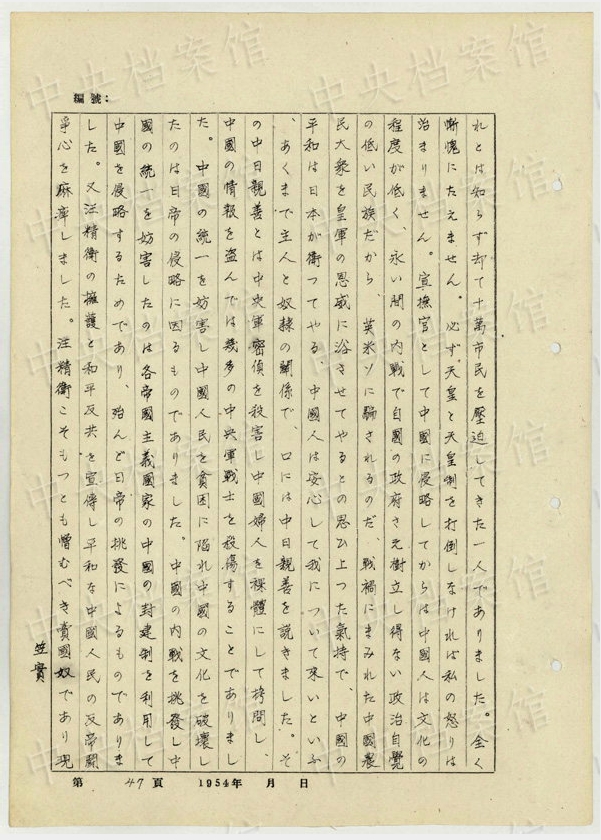 編號:
れとは知らず却て十萬市民を壓迫してきた一人でありました。全く
慚愧にたえません。必ず天皇と天皇制を打倒しなければ私の怒りは
治まりません。宣撫官として中國に侵略してからは中國人は文化の
程度が低く、永い間の内戰で自國の政府さえ樹立し得ない政治自覺
の低い民族だから、英米ソに騙されるのだ、戰禍にまみれた中國農
民大衆を皇軍の恩威に浴させてやるとの思ひ上つた氣持で、中國の
平和は日本が衛つてやる、中國人は安心して我について來いといふ
、あくまで主人と奴隷の關係で、口には中日親善を説きました。そ
の中日親善とは中央軍密偵を殺害し中國婦人を裸體にして拷問し、
中國の情報を盗んでは幾多の中央軍戰士を殺傷することでありまし
た。中國の統一を妨害し中國人民を貧困に陥れ中國の文化を破壊し
たのは日帝の侵略に因るものでありました。中國の内戰を挑發し中
國の統一を妨害したのは各帝國主義國家の中國の封建制を利用して
中國を侵略するためであり、殆んど日帝の挑發によるものでありま
した。又汪精衛の擁護と和平反共を宣傳し平和な中國人民の反帝闘
爭心を麻痺しました。汪精衛こそもつとも憎むべき賣國奴であり現
笠實
第 47 頁 1954年 月 日
中央档案馆